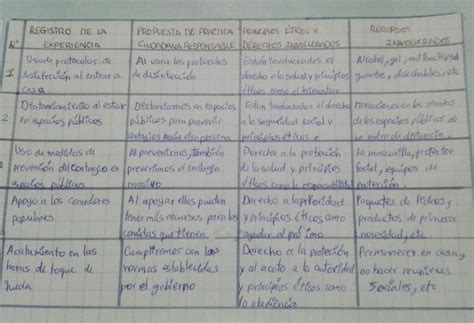 N° REGISTRO DE LA EXPERIENCIA
PROPUESTA DE PRACTICA CIUDADANA RESPONSABLE
PRINCIPIOS ÉTICOS Y DERECHOS INVOLUCRADOS
RECURSOS INVOLUCRADOS
1
Uso de protocolos de
desinfección al entrar a
casa
Al usar los protocolos
de desinfección
Estarán involucrados el
derecho a la salud y principios
éticos como el bienestar
Alcohol, gel,
guantes, desechables, etc
2
Distanciamiento al estar
en espacios públicos
Distanciarnos en espacios
públicos para prevenir
contagios hacia otra persona
Están involucrados el derecho
a la seguridad social y
principios éticos
Mantenernos en los
de los espacios públicos de
un metro de distancia
Uso de medidas de
prevención del contagio en
espacios públicos
Al prevenirnos, también
prevenimos el contagio
masivo
Derecho a la protección
de la salud y principios
éticos como la responsabilidad
La mascarilla, protector
facial, equipos de
protección.
Apoyo a los comedores
populares
Al apoyar ellos pueden
tener más recursos para las
comidas que tienen
Derecho a la prioridad
y principios éticos como
ayudar al prójimo
Paquetes de fideos,
productos de primera
necesidad, etc
Acatamiento en las
horas de toque de
queda
Cumpliremos con las
normas establecidas
por el gobierno
Derecho a la protección
y al acato a la autoridad
y principios éticos como
la obediencia
Permanecer en casa,
no hacer reuniones
sociales, etc